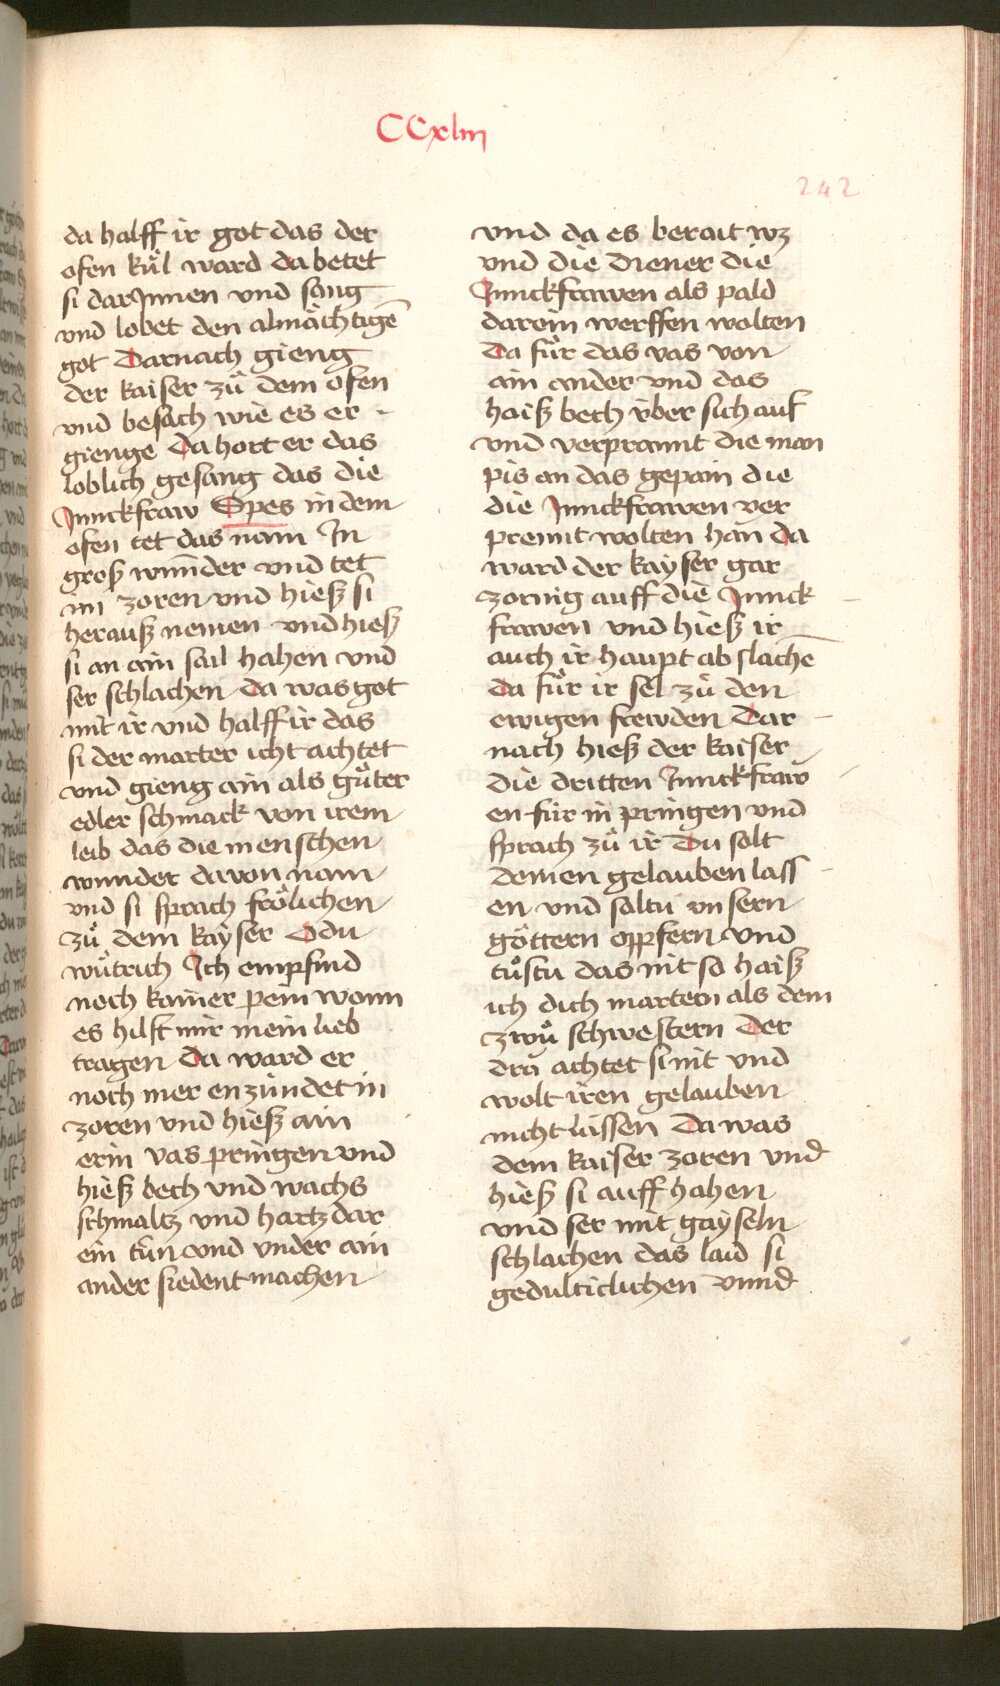 CCxliii
242
da halff ir got das der
ofen kuͤl ward da betet
si darJnnen vnd sang
vnd lobet den almaͤchtigē
got Darnach gieng
der kaiser zuͦ dem ofen
vnd besach wie es er -
gienge Da hort er das
loblich gesang das die
Junckfraw Spes in dem
ofen tet das nam In
groß wūnder vnd tet
im zoren vnd hieß si
herauß nemen vnd hieß
si an ain sail hahen vnd
ser schlachen da was got
mit ir vnd halff ir das
si der marter icht achtet
vnd gieng ain als guͤter
edler schmack von irem
leib das die menschen
wunder davon nam
vnd si sprach froͤlichen
zuͦ dem kayser O du
wuͤtrich Ich empfind
noch kainer pein wann
es hilft mir mein lieb
tragen Da ward er
noch mer enzündet in
zoren vnd hieß ain
erin vas pringen vnd
hieß bech vnd wachs
schmaltz vnd hartz dar
ein tün vnd vnder ain
ander siedent machen
vnd da es berait wz
vnd die diener die
Junckfrawen als pald
darein werffen wolten
Da fuͤr das vas von
ain ander vnd das
haiß bech v̈ber sich auf
vnd verprannt die man
pis an das gepain die
die Junckfrawen ver
prennt wolten han da
ward der kayser gar
zornig auff die Junck -
frawen vnd hieß ir
auch ir haupt ab slachē
da fuͤr ir sel zuͦ den
ewigen frewden Dar -
nach hieß der kaiser
die dritten Junckfraw
en für in pringen vnd
sprach zuͦ ir Du solt
deinen gelauben lass -
en vnd soltu vnsern
goͤttern opffern vnd
tuͦstu das nit so haiß
ich dich martern als dein
zwuͦ schwestern Der
dra achtet si nit vnd
wolt iren gelauben
nicht lassen Da was
dem kaiser zoren vnd
hieß si auff hahen
vnd ser mit gayseln
schlachen das laid si
gedulticlichen vnnd